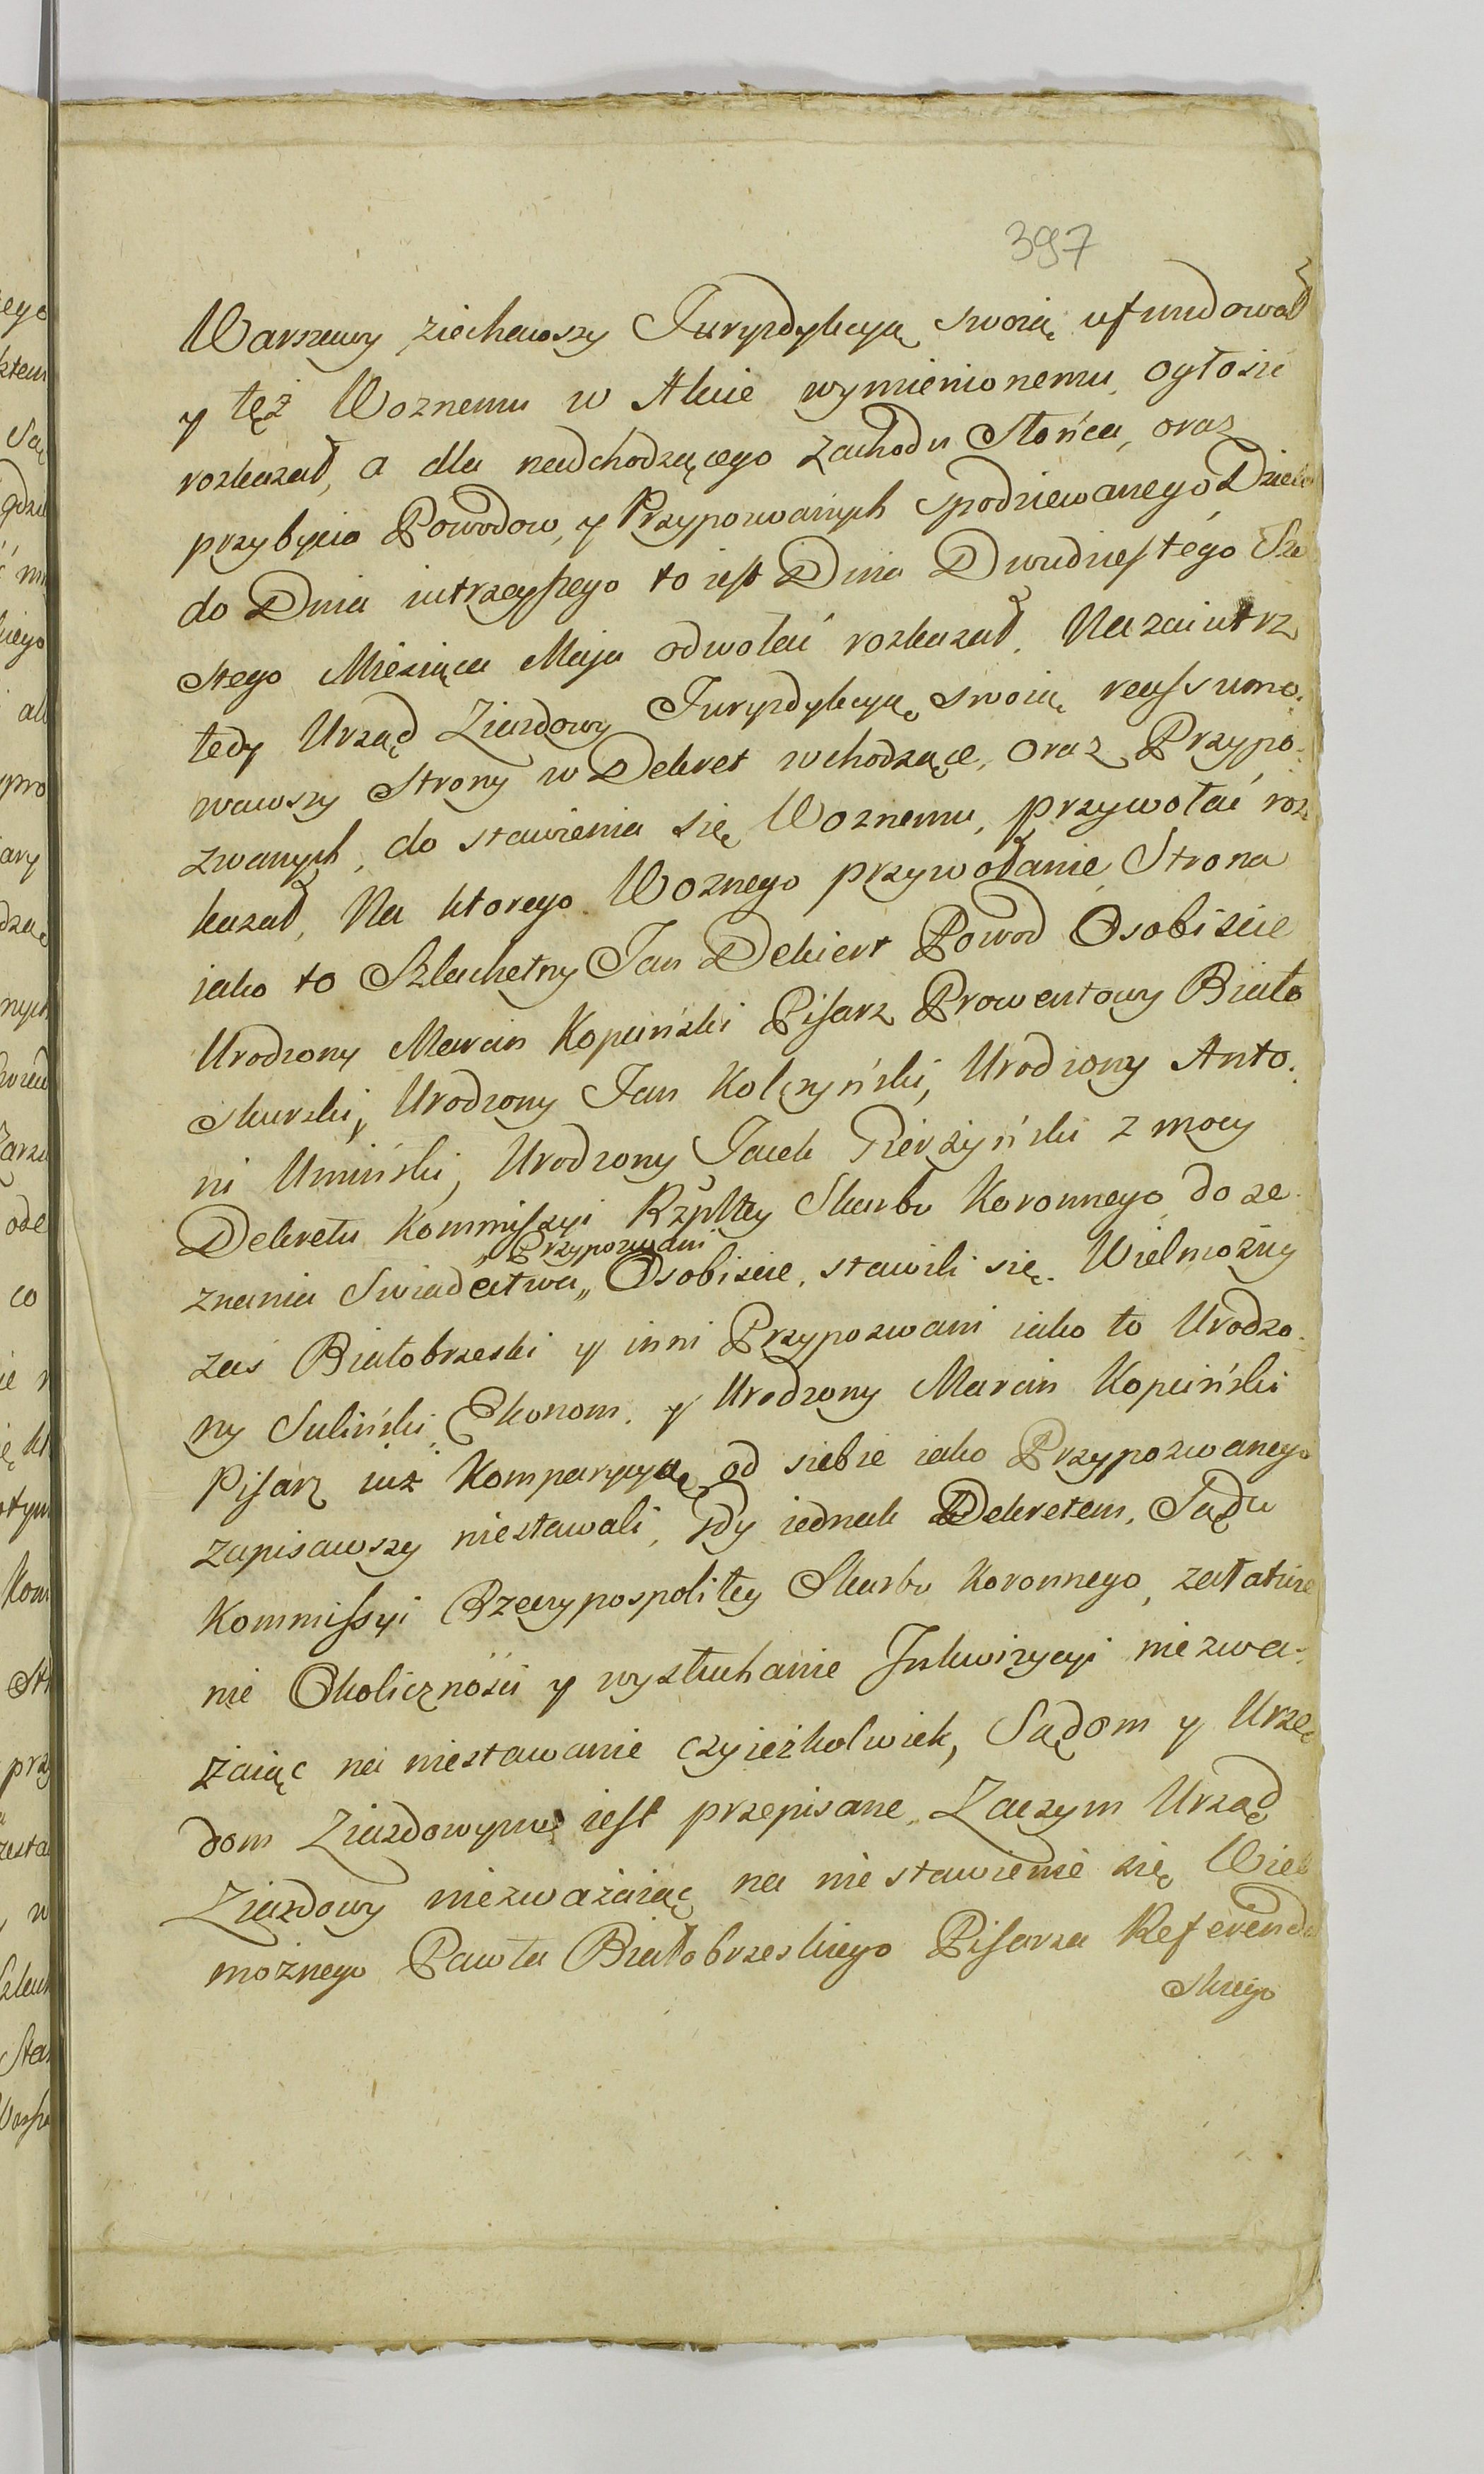 397
Warszawy ziechawszy Jurysdykcyą swoią ufundował
y tęż Woznemu w Akcie wymienionemu ogłosić
rozkazał, a dla nadchodzącego zachodu Słońca, oraz
przybycia Powodow, y Przypozwanych spodziewanego
do Dnia iutrzeyszego to iest Dnia Dwudziestego Szo
stego Miesiąca Maja odwołać rozkazał. Nazaiutrz
tedy Urząd Ziazdowy Jurysdykcyą swoią reassumo:
wawszy Strony w Dekret wchodzące, oraz Przypo:
zwanych, do stawienia się Woznemu, przywołać roz
kazał, Na ktorego Woznego przywołanie Strona
iako to Szlachetny Jan Dekiert Powod Osobiscie
Urodzony Marcin Kopciński Pisarz Prowentowy Biało
skurski, Urodzony Jan Kolczyński, Urodzony Anto:
ni Umiński, Urodzony Jacek Pierzyński z mocy
Dekretu Kommissyi Rzpltey Skarbu Koronnego do ze:
„Przypozwani
znania Swiadectwa„ Osobiscie, stawili się. Wielmożny
zaś Białobrzeski y inni Przypozwani iako to Urodzo:
ny Suliński Ekonom, y Urodzony Marcin Kopciński
Pisarz iuż Komparycyą od siebie iako Przypozwanego
zapisawszy niestawali, Gdy iednak Dekretem, Sądu
Kommissyi Rzeczypospolitey Skarbu Koronnego, załatwie
nie Okoliczności y wysłuchanie Inkwizycyi niezwa:
żaiąc na niestawanie czyieżkolwiek, Sądom y Urzę
dom Ziazdowym iest przepisane, Zaczym Urząd
Ziazdowy niezważaiąc na niestawienie się Wiel
możnego Pawła Białobrzeskiego Pisarza Referenda
skiego